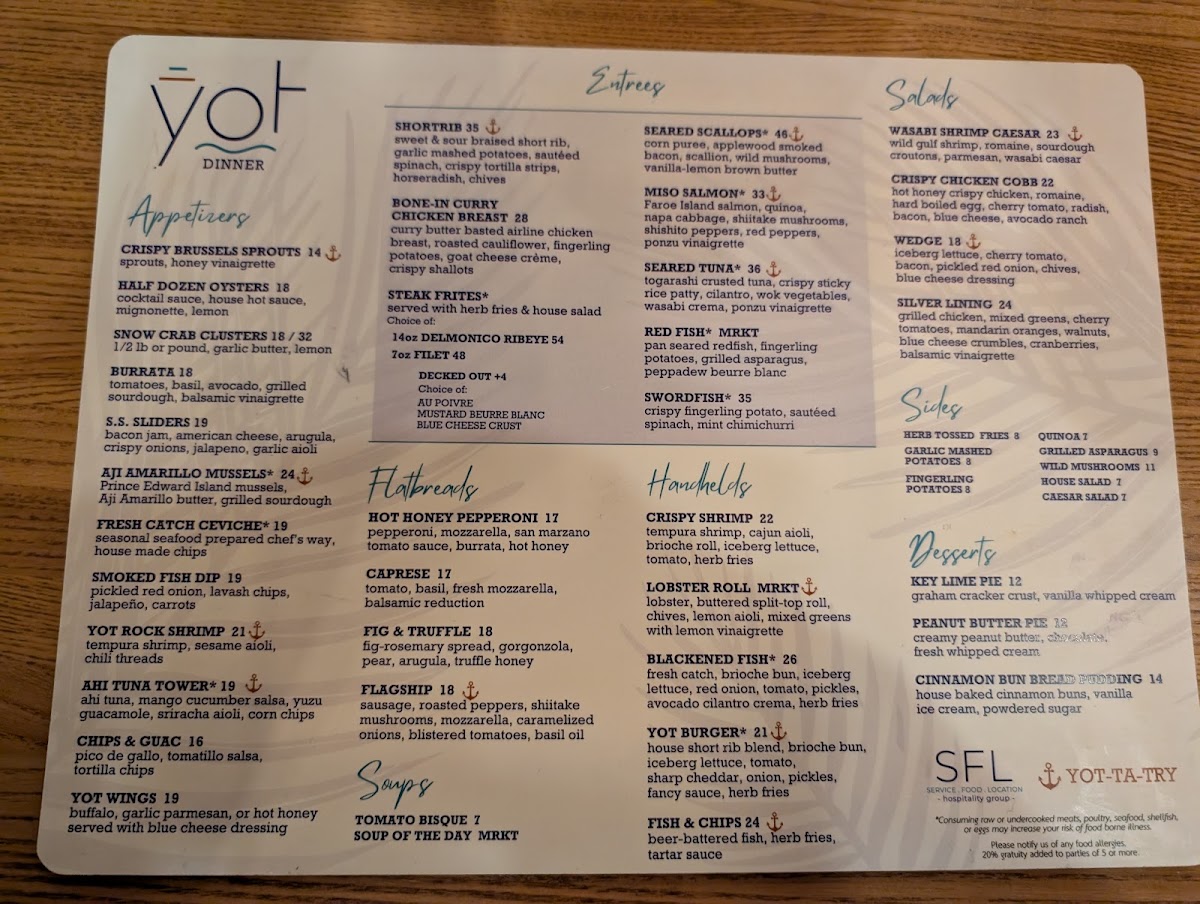 yot
DINNER
Appetizers
CRISPY BRUSSELS SPROUTS 14
sprouts, honey vinaigrette
HALF DOZEN OYSTERS 18
cocktail sauce, house hot sauce,
mignonette, lemon
SNOW CRAB CLUSTERS 18 / 32
1/2 lb or pound, garlic butter, lemon
BURRATA 18
tomatoes, basil, avocado, grilled
sourdough, balsamic vinaigrette
S.S. SLIDERS 19
bacon jam, american cheese, arugula,
crispy onions, jalapeno, garlic aioli
AJI AMARILLO MUSSELS* 24
Prince Edward Island mussels,
Aji Amarillo butter, grilled sourdough
FRESH CATCH CEVICHE* 19
seasonal seafood prepared chef's way,
house made chips
SMOKED FISH DIP 19
pickled red onion, lavash chips,
jalapeño, carrots
YOT ROCK SHRIMP 21
tempura shrimp, sesame aioli,
chili threads
AHI TUNA TOWER* 19
ahi tuna, mango cucumber salsa, yuzu
guacamole, sriracha aioli, corn chips
CHIPS & GUAC 16
pico de gallo, tomatillo salsa,
tortilla chips
YOT WINGS 19
buffalo, garlic parmesan, or hot honey
served with blue cheese dressing
Entrees
SHORTRIB 35
sweet & sour braised short rib,
garlic mashed potatoes, sautéed
spinach, crispy tortilla strips,
horseradish, chives
BONE-IN CURRY
CHICKEN BREAST 28
curry butter basted airline chicken
breast, roasted cauliflower, fingerling
potatoes, goat cheese crème,
crispy shallots
STEAK FRITES*
served with herb fries & house salad
Choice of:
14oz DELMONICO RIBEYE 54
7oz FILET 48
DECKED OUT +4
Choice of:
AU POIVRE
MUSTARD BEURRE BLANC
BLUE CHEESE CRUST
SEARED SCALLOPS* 46
corn puree, applewood smoked
bacon, scallion, wild mushrooms,
vanilla-lemon brown butter
MISO SALMON* 33
Faroe Island salmon, quinoa,
napa cabbage, shiitake mushrooms,
shishito peppers, red peppers,
ponzu vinaigrette
SEARED TUNA* 36
togarashi crusted tuna, crispy sticky
rice patty, cilantro, wok vegetables,
wasabi crema, ponzu vinaigrette
RED FISH* MRKT
pan seared redfish, fingerling
potatoes, grilled asparagus,
peppadew beurre blanc
SWORDFISH* 35
crispy fingerling potato, sautéed
spinach, mint chimichurri
Flatbreads
HOT HONEY PEPPERONI 17
pepperoni, mozzarella, san marzano
tomato sauce, burrata, hot honey
CAPRESE 17
tomato, basil, fresh mozzarella,
balsamic reduction
FIG & TRUFFLE 18
fig-rosemary spread, gorgonzola,
pear, arugula, truffle honey
FLAGSHIP 18
sausage, roasted peppers, shiitake
mushrooms, mozzarella, caramelized
onions, blistered tomatoes, basil oil
Soups
TOMATO BISQUE 7
SOUP OF THE DAY MRKT
Handhelds
CRISPY SHRIMP 22
tempura shrimp, cajun aioli,
brioche roll, iceberg lettuce,
tomato, herb fries
LOBSTER ROLL MRKT
lobster, buttered split-top roll,
chives, lemon aioli, mixed greens
with lemon vinaigrette
BLACKENED FISH* 26
fresh catch, brioche bun, iceberg
lettuce, red onion, tomato, pickles,
avocado cilantro crema, herb fries
YOT BURGER* 21
house short rib blend, brioche bun,
iceberg lettuce, tomato,
sharp cheddar, onion, pickles,
fancy sauce, herb fries
FISH & CHIPS 24
beer-battered fish, herb fries,
tartar sauce
Salads
WASABI SHRIMP CAESAR 23
wild gulf shrimp, romaine, sourdough
croutons, parmesan, wasabi caesar
CRISPY CHICKEN COBB 22
hot honey crispy chicken, romaine,
hard boiled egg, cherry tomato, radish,
bacon, blue cheese, avocado ranch
WEDGE 18
iceberg lettuce, cherry tomato,
bacon, pickled red onion, chives,
blue cheese dressing
SILVER LINING 24
grilled chicken, mixed greens, cherry
tomatoes, mandarin oranges, walnuts,
blue cheese crumbles, cranberries,
balsamic vinaigrette
Sides
HERB TOSSED FRIES 8
GARLIC MASHED
POTATOES 8
FINGERLING
POTATOES 8
QUINOA 7
GRILLED ASPARAGUS 9
WILD MUSHROOMS 11
HOUSE SALAD 7
CAESAR SALAD 7
Desserts
KEY LIME PIE 12
graham cracker crust, vanilla whipped cream
PEANUT BUTTER PIE 12
creamy peanut butter, chocolate,
fresh whipped cream
CINNAMON BUN BREAD PUDDING 14
house baked cinnamon buns, vanilla
ice cream, powdered sugar
SFL
SERVICE . FOOD . LOCATION
- hospitality group -
YOT-TA-TRY
*Consuming raw or undercooked meats, poultry, seafood, shellfish,
or eggs may increase your risk of food borne illness.
Please notify us of any food allergies.
20% gratuity added to parties of 5 or more.